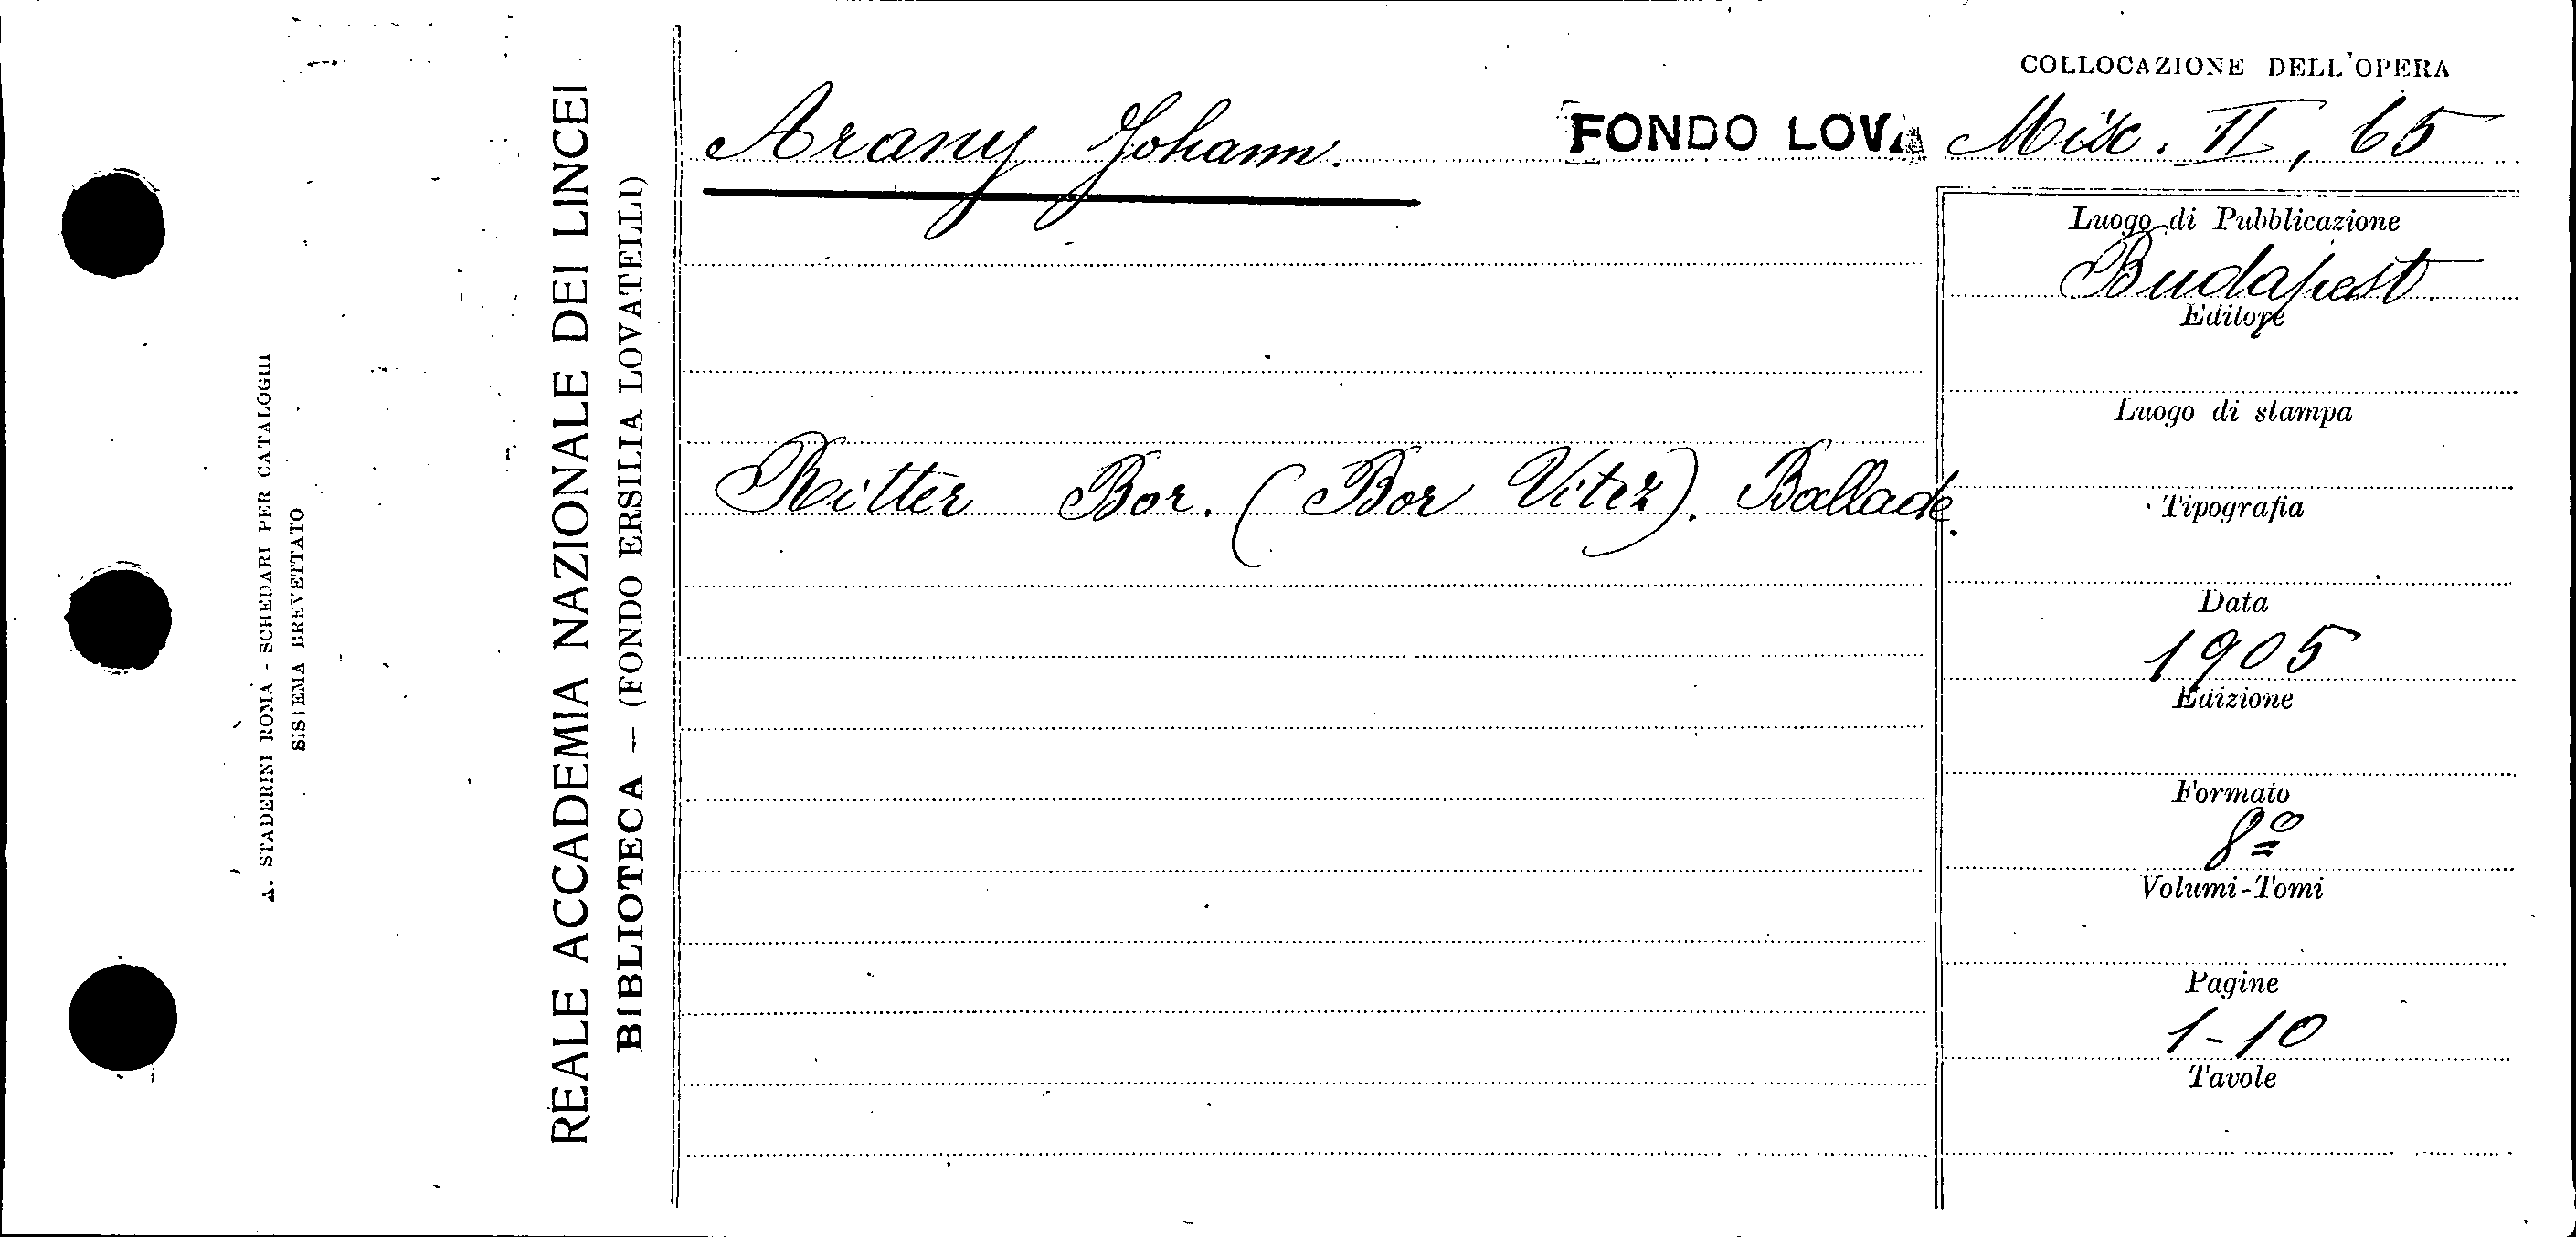 A. STADERINI ROMA - SCHEDARI PER CATALOGHI
SISTEMA BREVETTATO
REALE ACCADEMIA NAZIONALE DEI LINCEI
BIBLIOTECA — (FONDO ERSILIA LOVATELLI)
COLLOCAZIONE DELL'OPERA
Arany Johann. FONDO LOVA Misc. II, 65
Ritter Bor. (Bor Vitez). Ballade.
Luogo di Pubblicazione
Budapest
Editore
Luogo di stampa
Tipografia
Data
1905
Edizione
Formato
8º
Volumi-Tomi
Pagine
1-10
Tavole